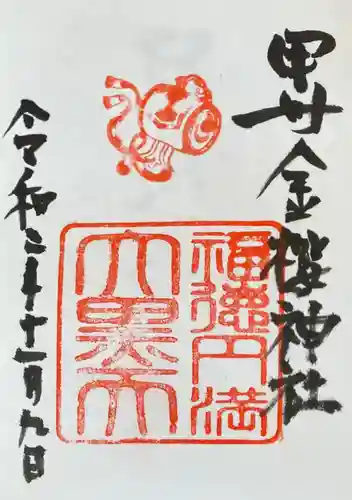 甲斉金櫻神社
福徳円満
大黒天
令和二年十一月九日